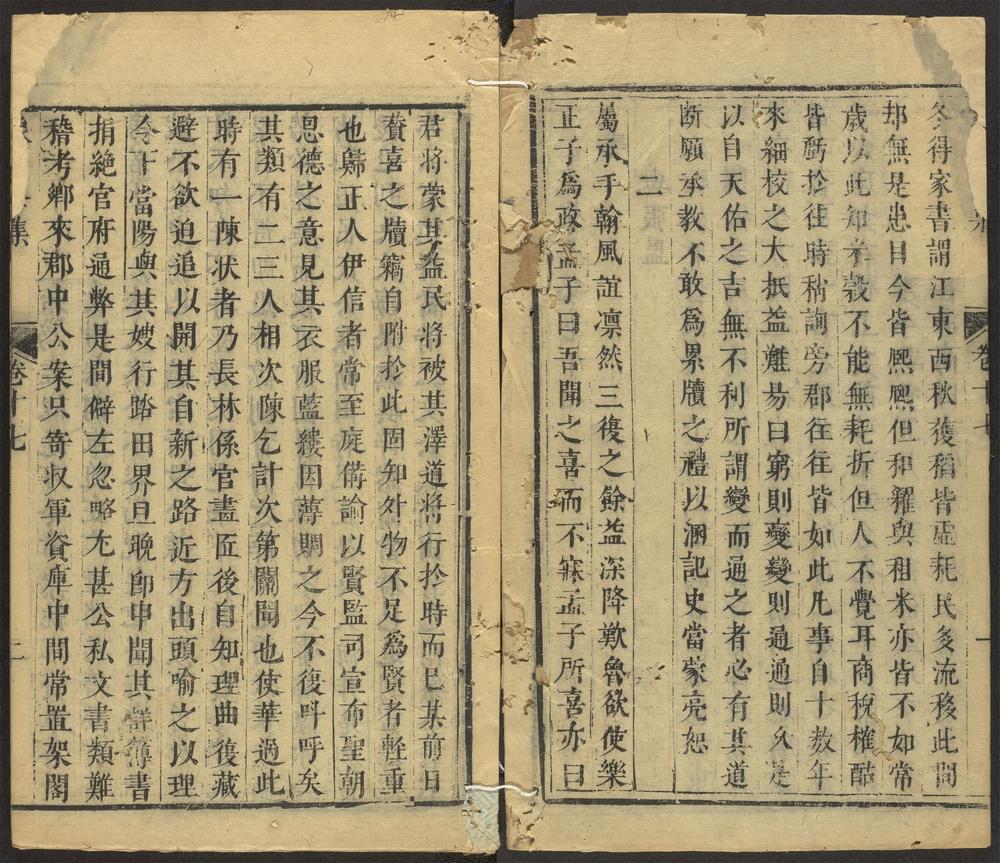 冬得家書謂江東西秋獲稻皆虛耗民多流移此間
却無是患目今皆熈熈但和糴與租米亦皆不如常
歲以此知年穀不能無耗折但人不覺耳商稅榷酤
皆虧扵往時稍詢旁郡往往皆如此凡事自十数年
來細校之大抵益難易曰窮則變變則通通則久是
以自天佑之吉無不利所謂變而通之者必有其道
断願承教不敢為累牘之禮以溷記史當蒙亮恕
二
屬承手翰風誼凛然三復之餘益深降歎魯欲使樂
正子為政孟子曰吾聞之喜而不寐孟子所喜亦曰
卷十七
一
君將蒙其益民將被其澤道將行扵時而已某前日
賛喜之牘竊自附扵此固知外物不足為賢者輕重
也歸正人伊信者常至庭偹諭以賢監司宣布聖朝
恩德之意見其衣服藍縷因薄賙之今不復呌呼矣
其類有二三人相次陳乞計次第關聞也使華過此
時有一陳状者乃長林係官畫匠後自知理曲復藏
避不欲迫追以開其自新之路近方出頭喻之以理
令下當陽與其嫂行踏田界旦晚即申聞其詳簿書
捐絶官府通弊是間僻左忽略尤甚公私文書類難
稽考鄉來郡中公案只寄収軍資庫中間常置架閣
集
卷十七
二